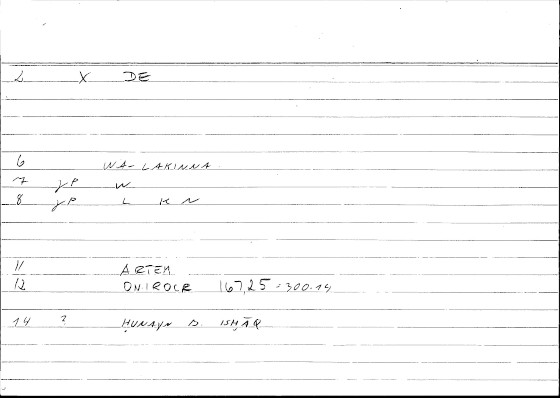 2 X DE
6 WA-LAKINNA
7 γP W
8 γP L K N
11 ARTEM
12 ONIROCR 167,25 = 300.14
14 ? ḤUNAYN B. ISḤĀQ